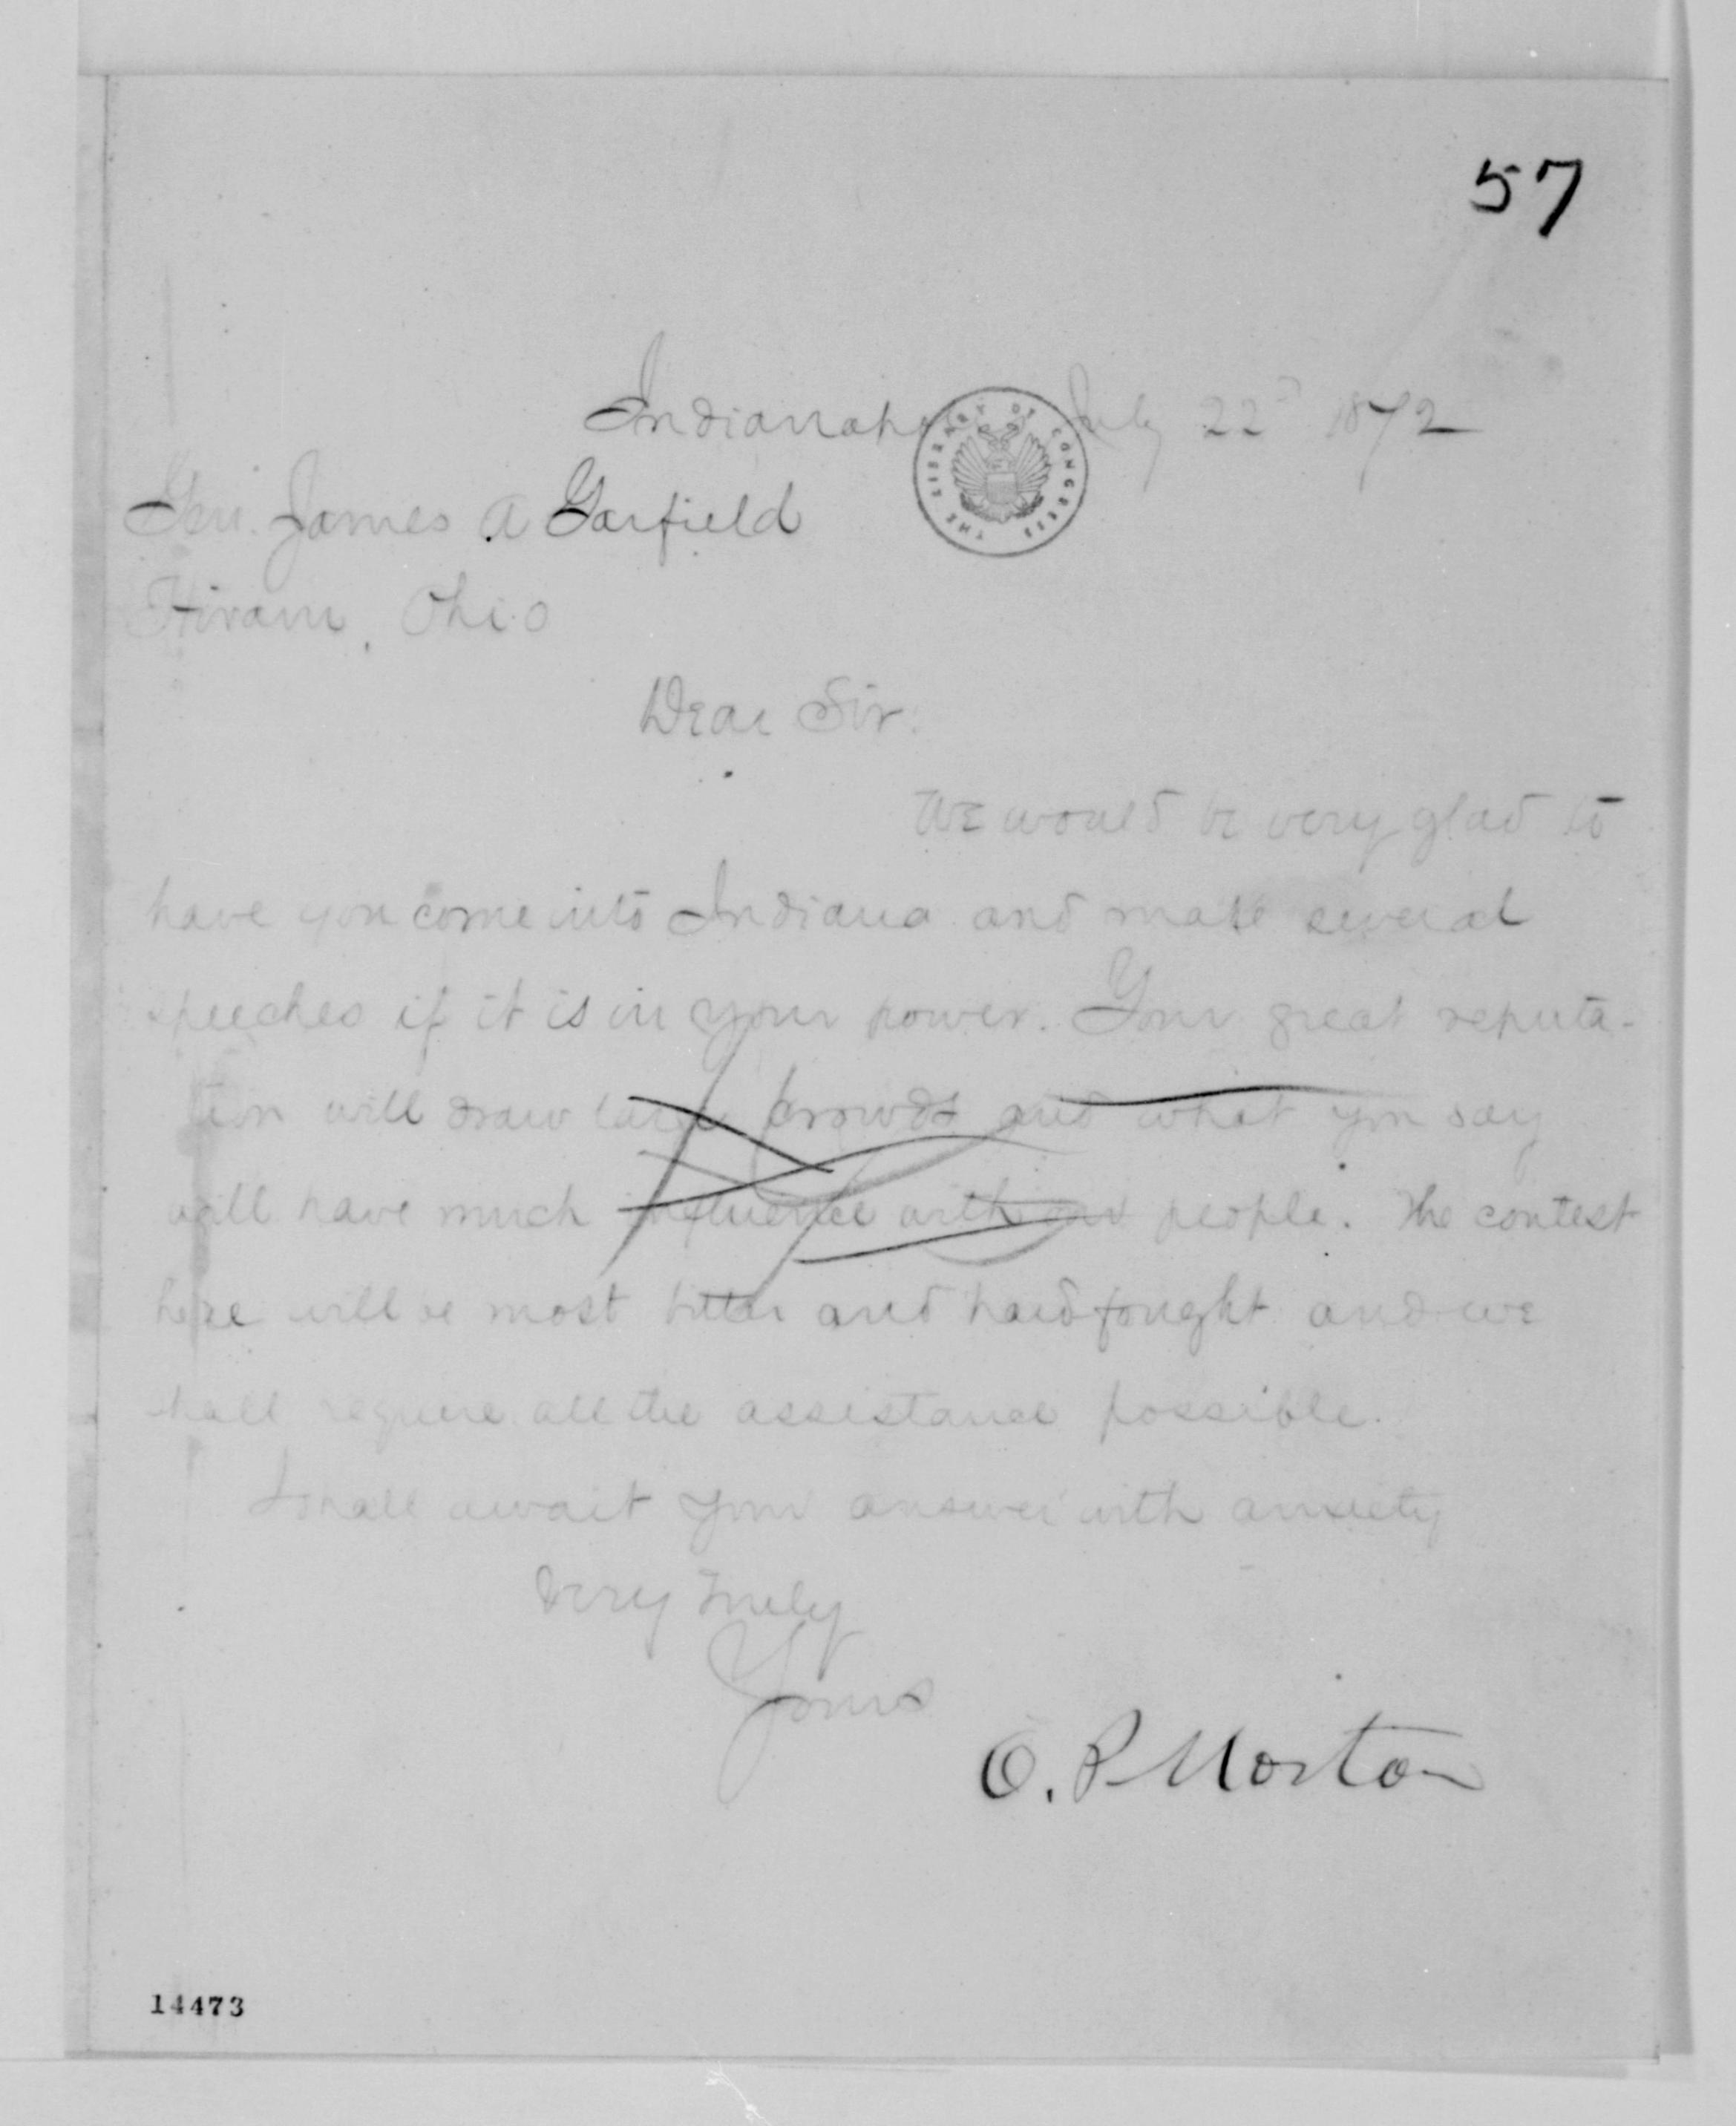 57
Indianapolis July 22d 1872
THE LIBRARY OF CONGRESS
Gen. James A Garfield
Hiram, Ohio
Dear Sir:
We would be very glad to
have you come into Indiana and make several
speeches if it is in your power. Your great reputa-
tion will draw large crowds and what you say
will have much influence with our people. The contest
here will be most bitter and hard fought and we
shall require all the assistance possible.
I shall await your answer with anxiety
Very Truly
Yours
O. P. Morton
14473